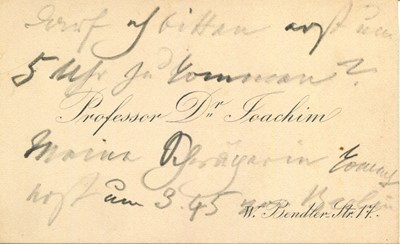 Darf ich bitten erst um
5 Uhr zu kommen?
Professor Dr. Joachim
Meine Schwägerin kommt
erst um 3.45 von Berlin
W. Bendler-Str. 17.